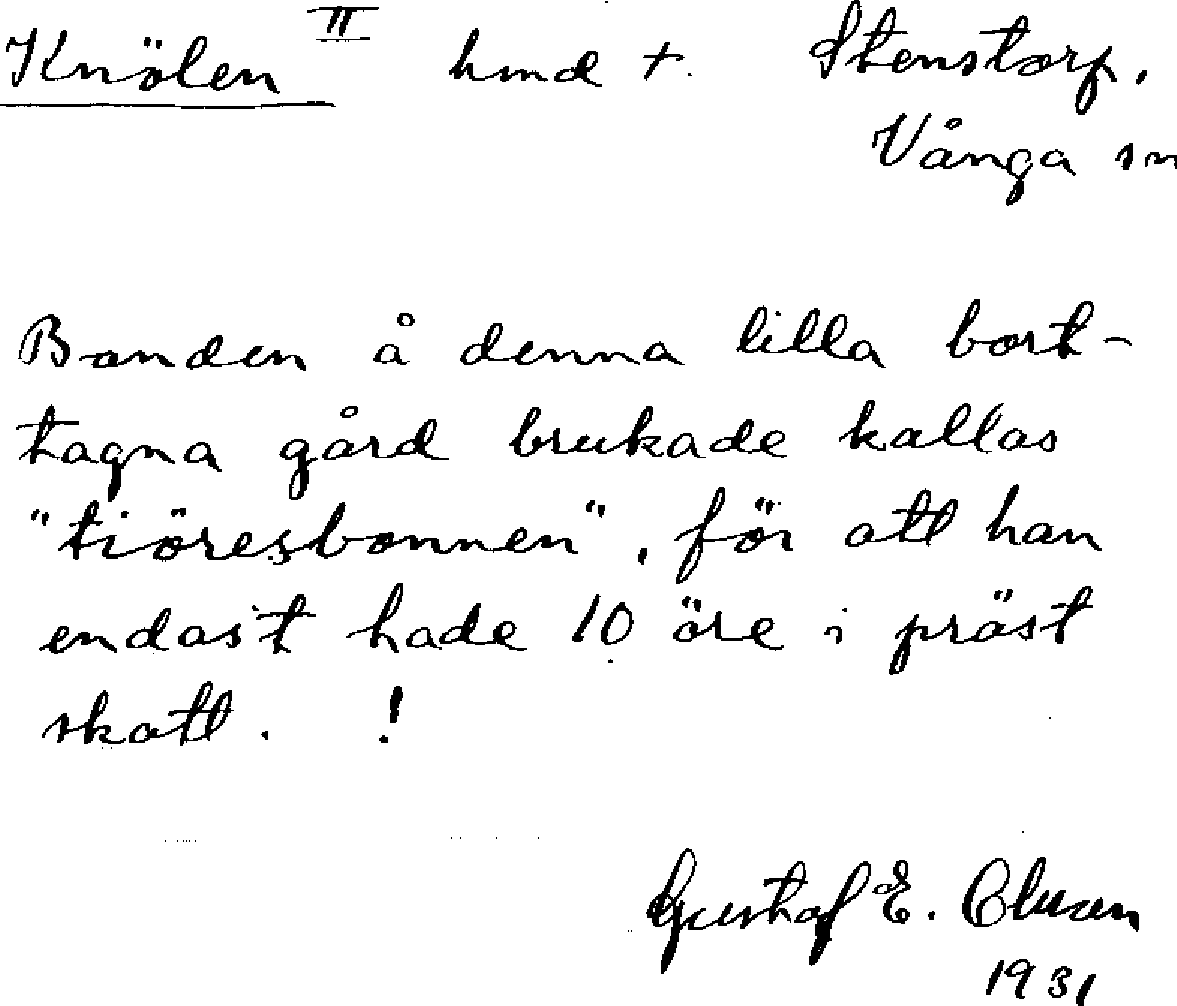 Knölen II hmd +. Stenstorp.
Vånga sn
Bonden å denna lilla bort-
tagna gård brukade kallas
"tiöresbonnen", för att han
endast hade 10 öre i präst
skatt. !
Gustaf E.
1931